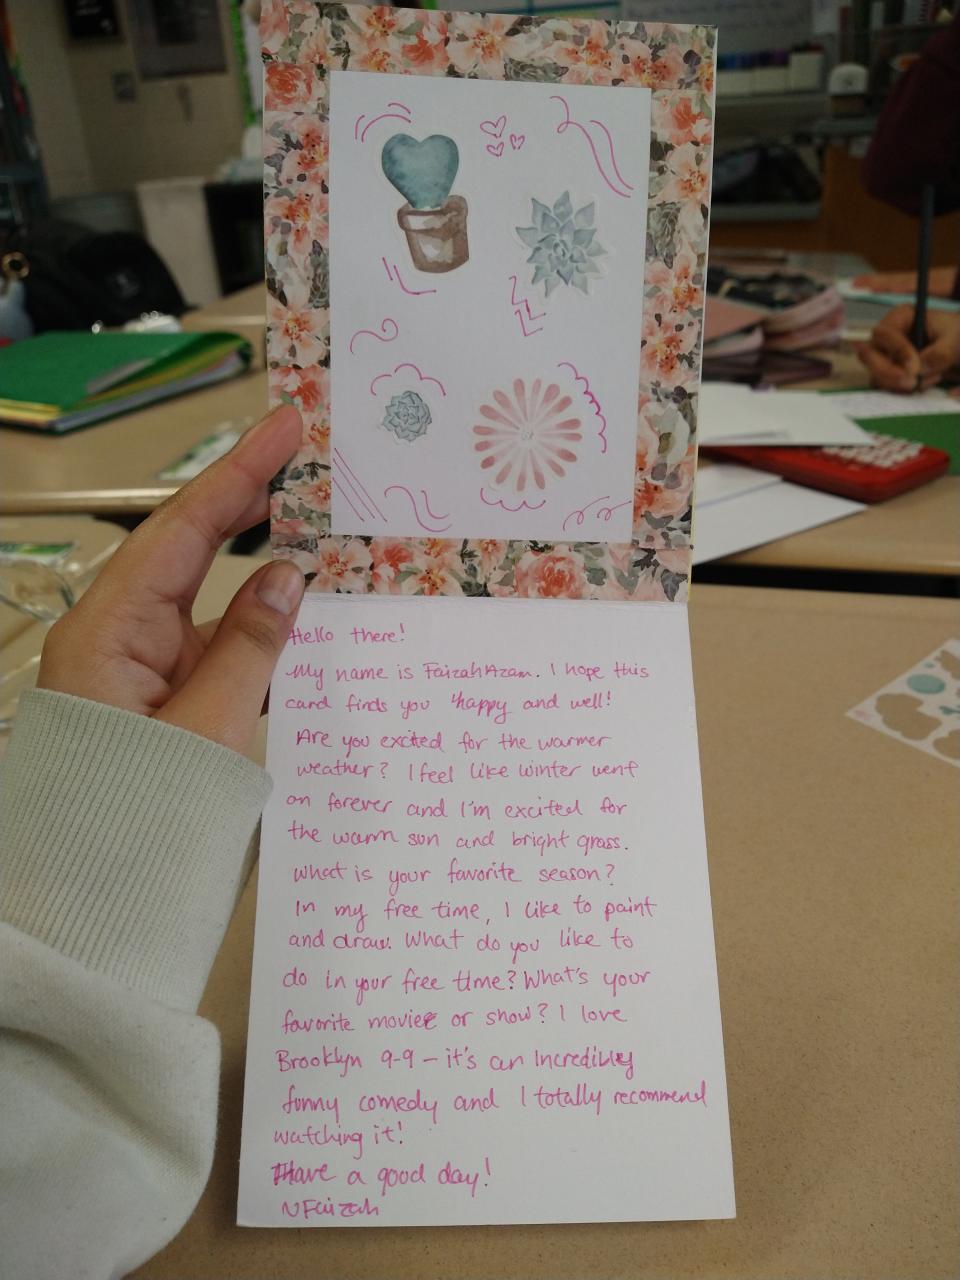 Hello there!
My name is Faizah Azam. I hope this
card finds you happy and well!
Are you excited for the warmer
weather? I feel like winter went
on forever and I'm excited for
the warm sun and bright grass.
What is your favorite season?
In my free time, I like to paint
and draw. What do you like to
do in your free time? What's your
favorite movie or show? I love
Brooklyn 9-9 – it's an incredibly
funny comedy and I totally recommend
watching it!
Have a good day!
~Faizah